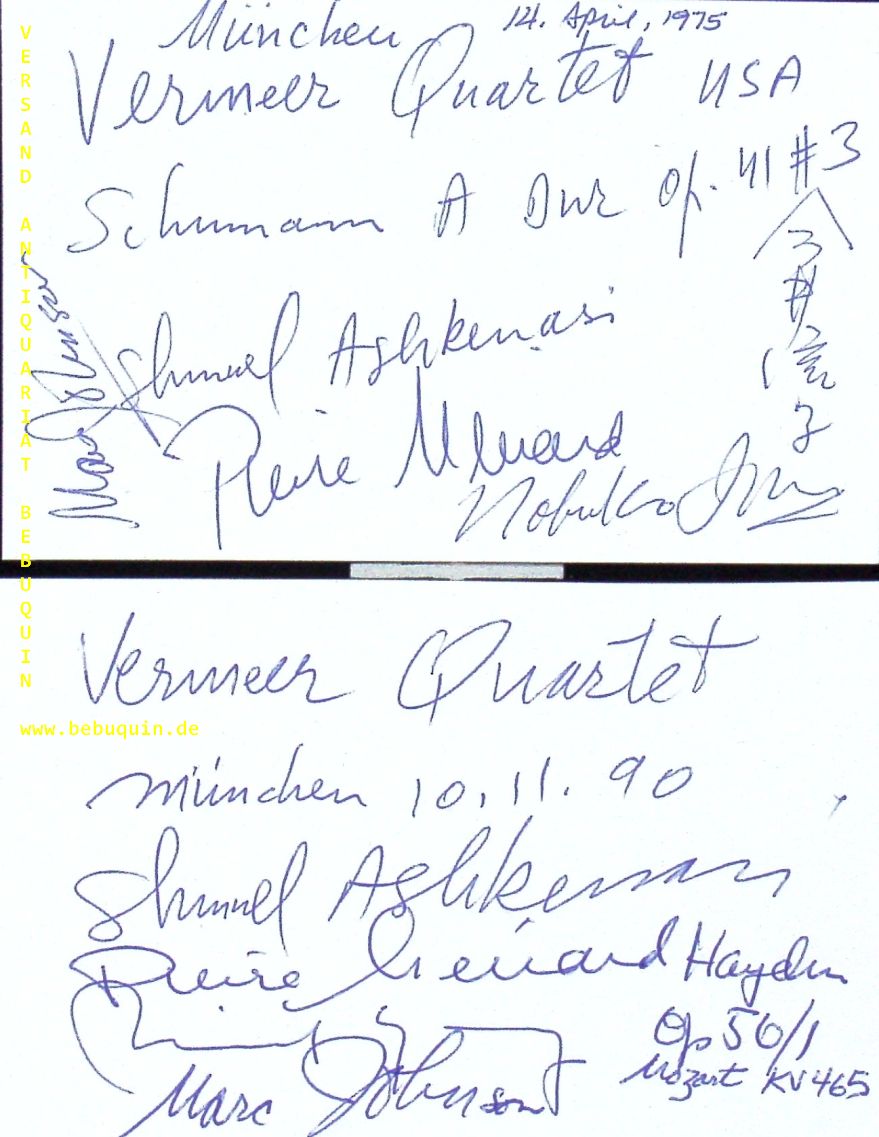 München 14. April, 1975
Vermeer Quartet USA
Schumann A Dur op. 41 #3
3
#
Shmuel Ashkenasi
Pierre Menard
Nobuko
Marc Johnson
Vermeer Quartet
München 10.11.90
Shmuel Ashkenasi
Pierre Menard
Haydn
Op 50/1
Mozart KV 465
Marc Johnson
VERSAND ANTIQUARIAT BEBUQUIN
www.bebuquin.de